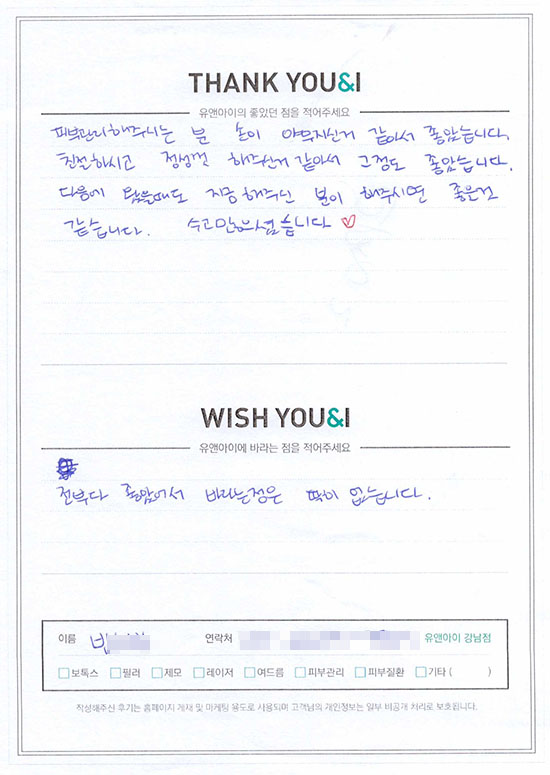 THANK YOU&I
유앤아이의 좋았던 점을 적어주세요
피부관리해주시는 분 손이 야무지신거 같아서 좋았습니다.
친절하시고 정성껏 해주신거 같아서 그점도 좋았습니다.
다음에 왔을때도 지금 해주신 분이 해주시면 좋은것
같습니다. 수고많으셨습니다 ♡
WISH YOU&I
유앤아이에 바라는 점을 적어주세요
전부다 좋았어서 바라는점은 딱히 없습니다.
이름 연락처 유앤아이 강남점
보톡스 필러 제모 레이저 여드름 피부관리 피부질환 기타 ( )
작성해주신 후기는 홈페이지 게재 및 마케팅 용도로 사용되며 고객님의 개인정보는 일부 비공개 처리로 보호됩니다.